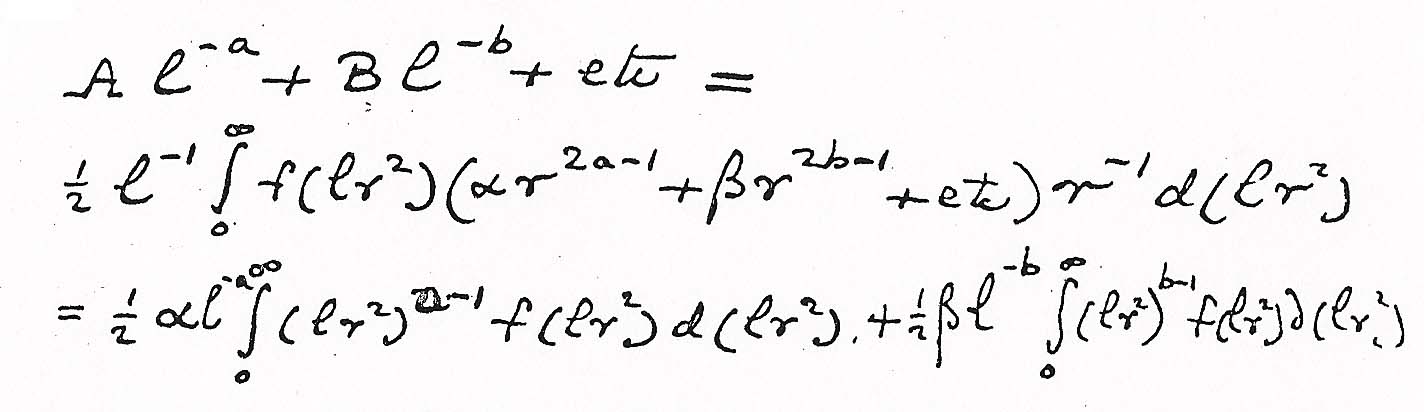 A ℓ⁻ᵃ + B ℓ⁻ᵇ + etc =
½ ℓ⁻¹ ∫₀^∞ f(ℓr²)(αr²ᵃ⁻¹ + βr²ᵇ⁻¹ + etc) r⁻¹ d(ℓr²)
= ½ αℓ⁻ᵃ ∫₀^∞ (ℓr²)ᵃ⁻¹ f(ℓr²) d(ℓr²). + ½ βℓ⁻ᵇ ∫₀^∞ (ℓr²)ᵇ⁻¹ f(ℓr²) d(ℓr²)